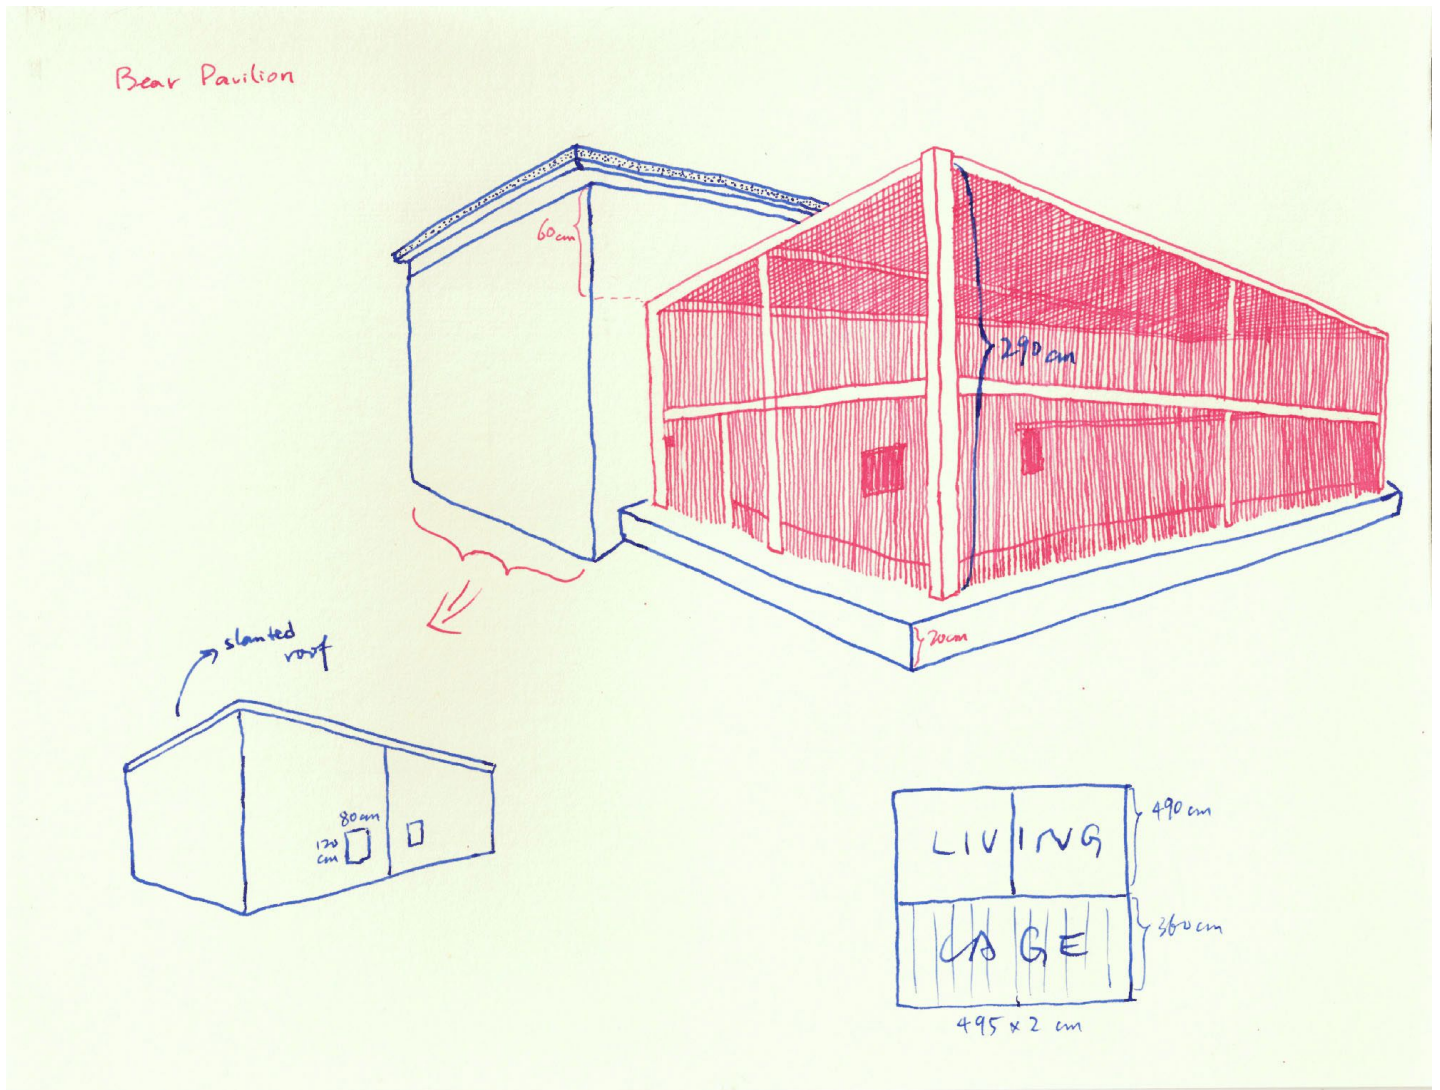 Bear Pavilion
60cm
290cm
20cm
slanted
roof
80cm
120
cm
LIVING
490cm
CAGE
360cm
495 x 2 cm